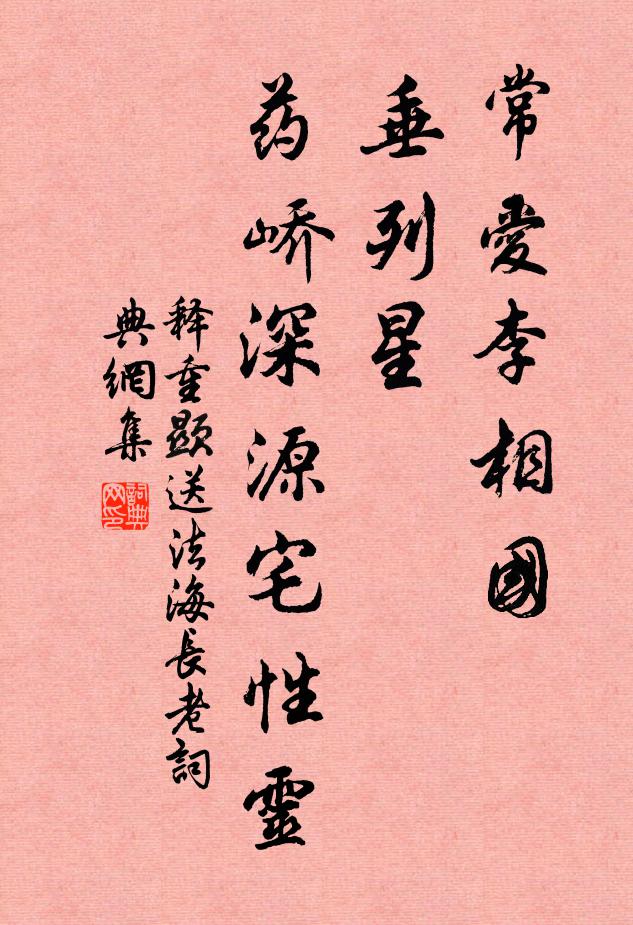 常愛李相國
垂列星
药峤深源宅性靈
释重顯送法海長老詞
典網集
詞典网印